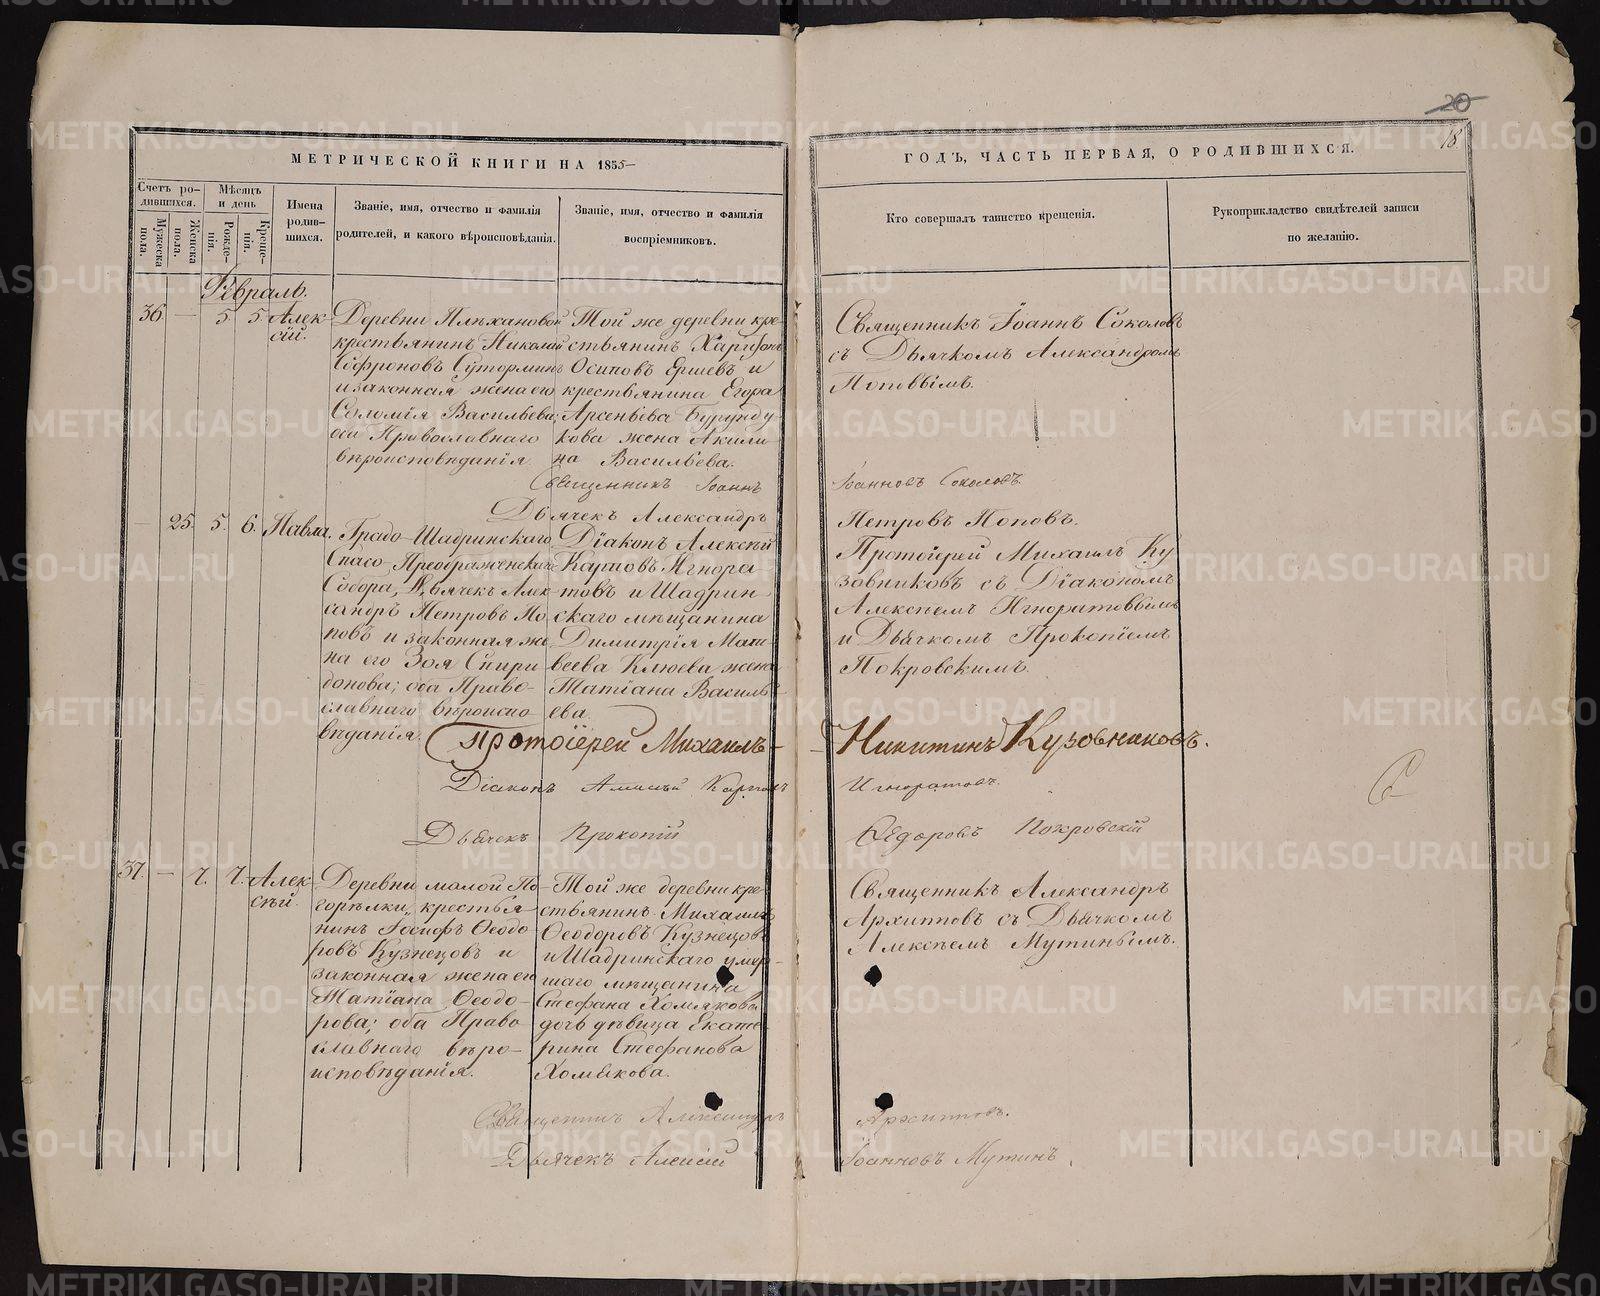 20
18
МЕТРИЧЕСКОЙ КНИГИ НА 1855
ГОДЪ, ЧАСТЬ ПЕРВАЯ, О РОДИВШИХСЯ.
Счетъ ро-
дившихся.
Мужеска
пола.
Женска
пола.
Мѣсяцъ
и день
Рожде-
нія.
Креще-
нія.
Имена
родив-
шихся.
Званіе, имя, отчество и фамилія
родителей, и какого вѣроисповѣданія.
Званіе, имя, отчество и фамилія
воспріемниковъ.
Кто совершалъ таинство крещенія.
Рукоприкладство свидѣтелей записи
по желанію.
Февраль.
36 — 5 5 Алек-
сій.
Деревни Плѣхановой
крестьянинъ Николай
Софроновъ Суторминъ
и законная жена его
Соломія Васильева;
оси Православнаго
вѣроисповѣданія
Той же деревни кре-
стьянинъ Харитонъ
Осиповъ Ершевъ и
крестьянина Егора
Арсеньева Бурунду
кова жена Акили
на Васильева.
Священникъ Іоаннъ Соколовъ
съ Дьячкомъ Александромъ
Поповымъ.
Священникъ Іоаннъ Іоанновъ Соколовъ
Дьячекъ Александръ Петровъ Поповъ.
25. 5. 6. Павла.
Градо-Шадринскаго
Спасо-Преображенскаго
Собора, Дьячекъ Алек-
сандръ Петровъ По
повъ и законная же
на его Зоя Спири
донова; оба Право-
славнаго вѣроиспо-
вѣданія
Діаконъ Алексѣй
Карповъ Игнора-
товъ и Шадрин
скаго мѣщанина
Димитрія Мат
веева Клюева жена
Татіана Василь
ева.
Протоіерей Михаилъ Ку
зовниковъ съ Діакономъ
Алексѣемъ Игноратовымъ
и Дьячкомъ Прокопіемъ
Покровскимъ.
Протоіерей Михаилъ Никитинъ Кузовниковъ.
Діаконъ Алексѣй Карповъ Игноратовъ.
Дьячекъ Прокопій Ѳедоровъ Покровскій
37. — 7. 7. Алек
сѣй.
Деревни малой По-
горѣлки, крестья
нинъ Іосифъ Ѳеодо-
ровъ Кузнецовъ и
законная жена его
Татіана Ѳеодо-
рова; оба Право
славнаго вѣро-
исповѣданія.
Той же деревни кре-
стьянинъ Михаилъ
Ѳеодоровъ Кузнецовъ
и Шадринскаго умер-
шаго мѣщанина
Стефана Хомякова
дочь дѣвица Екате-
рина Стефанова
Хомякова.
Священникъ Александръ
Архиповъ съ Дьячкомъ
Алексѣемъ Мутинымъ.
Священникъ Александръ Архиповъ.
Дьячекъ Алексій Іоанновъ Мутинъ.
METRIKI.GASO-URAL.RU